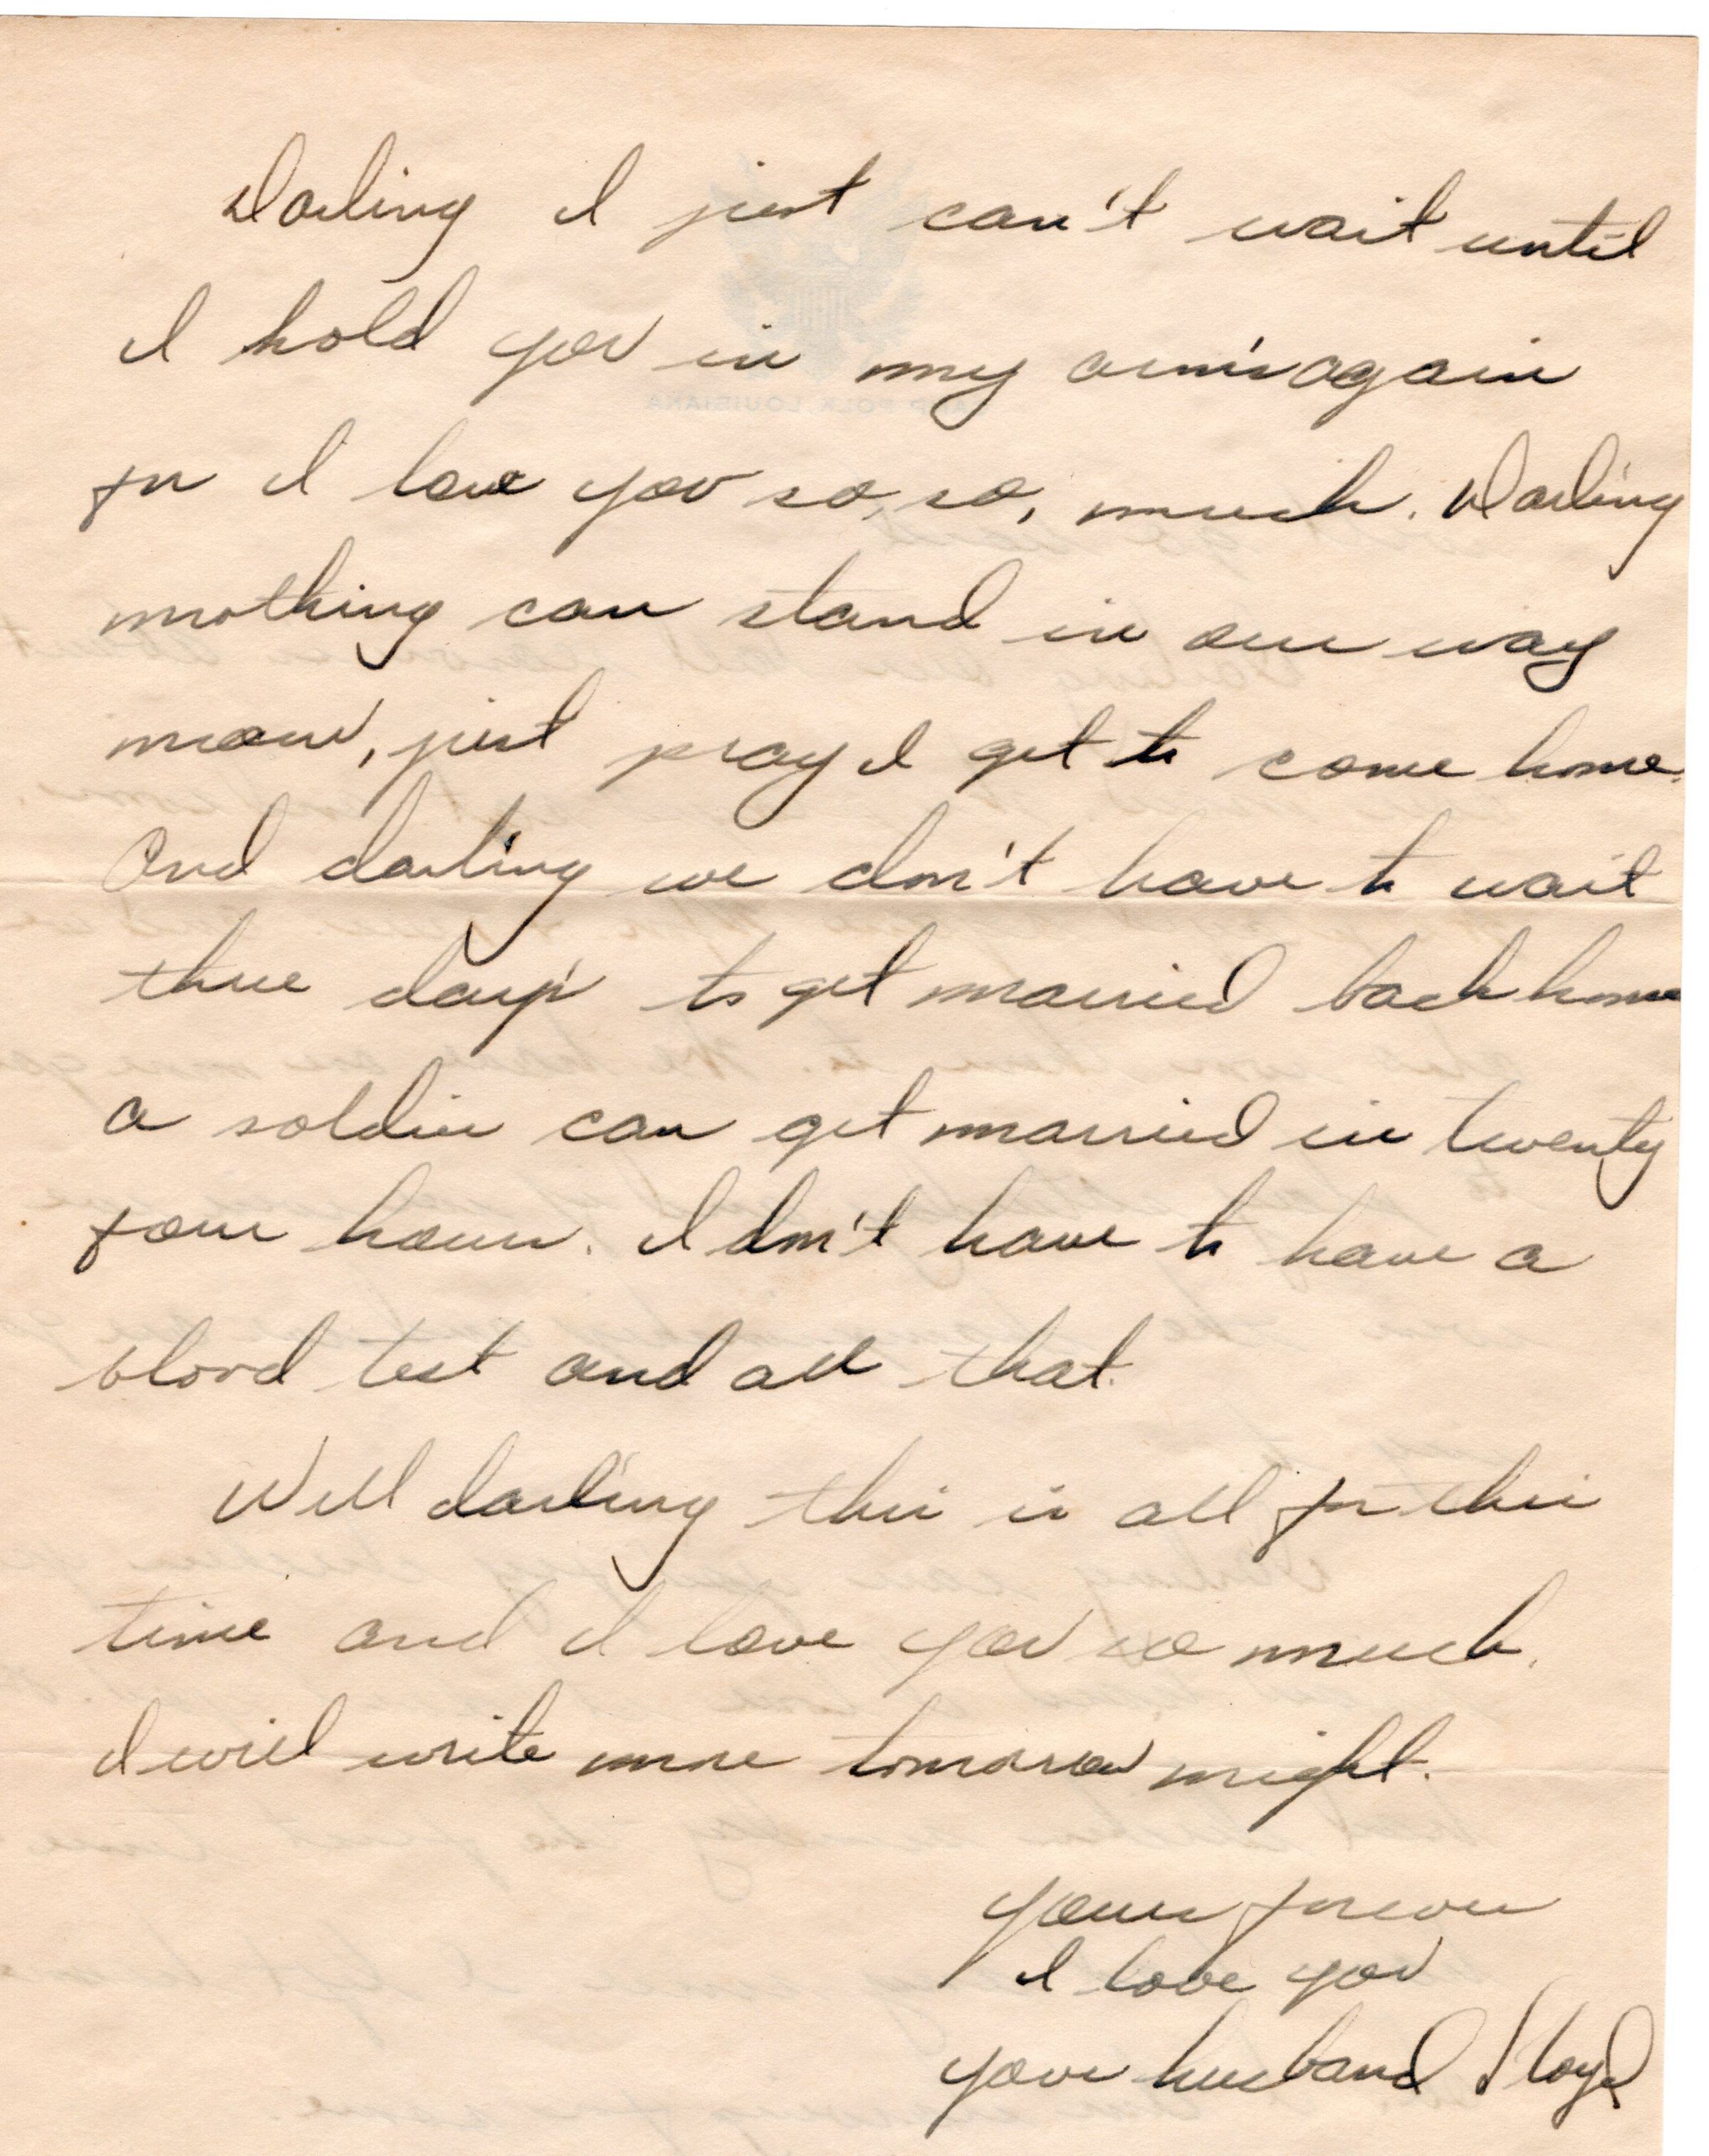 Darling I just can't wait until
I hold you in my arm's again
for I love you so, so, much. Darling
nothing can stand in our way
now, just pray I get to come home.
And darling we don't have to wait
three day's to get married back home
a soldier can get married in twenty
four hours. I don't have to have a
blood test and all that.
Well darling this is all for this
time and I love you so much.
I will write more tomorow night.
Yours forever
I love you
Your husband Floyd